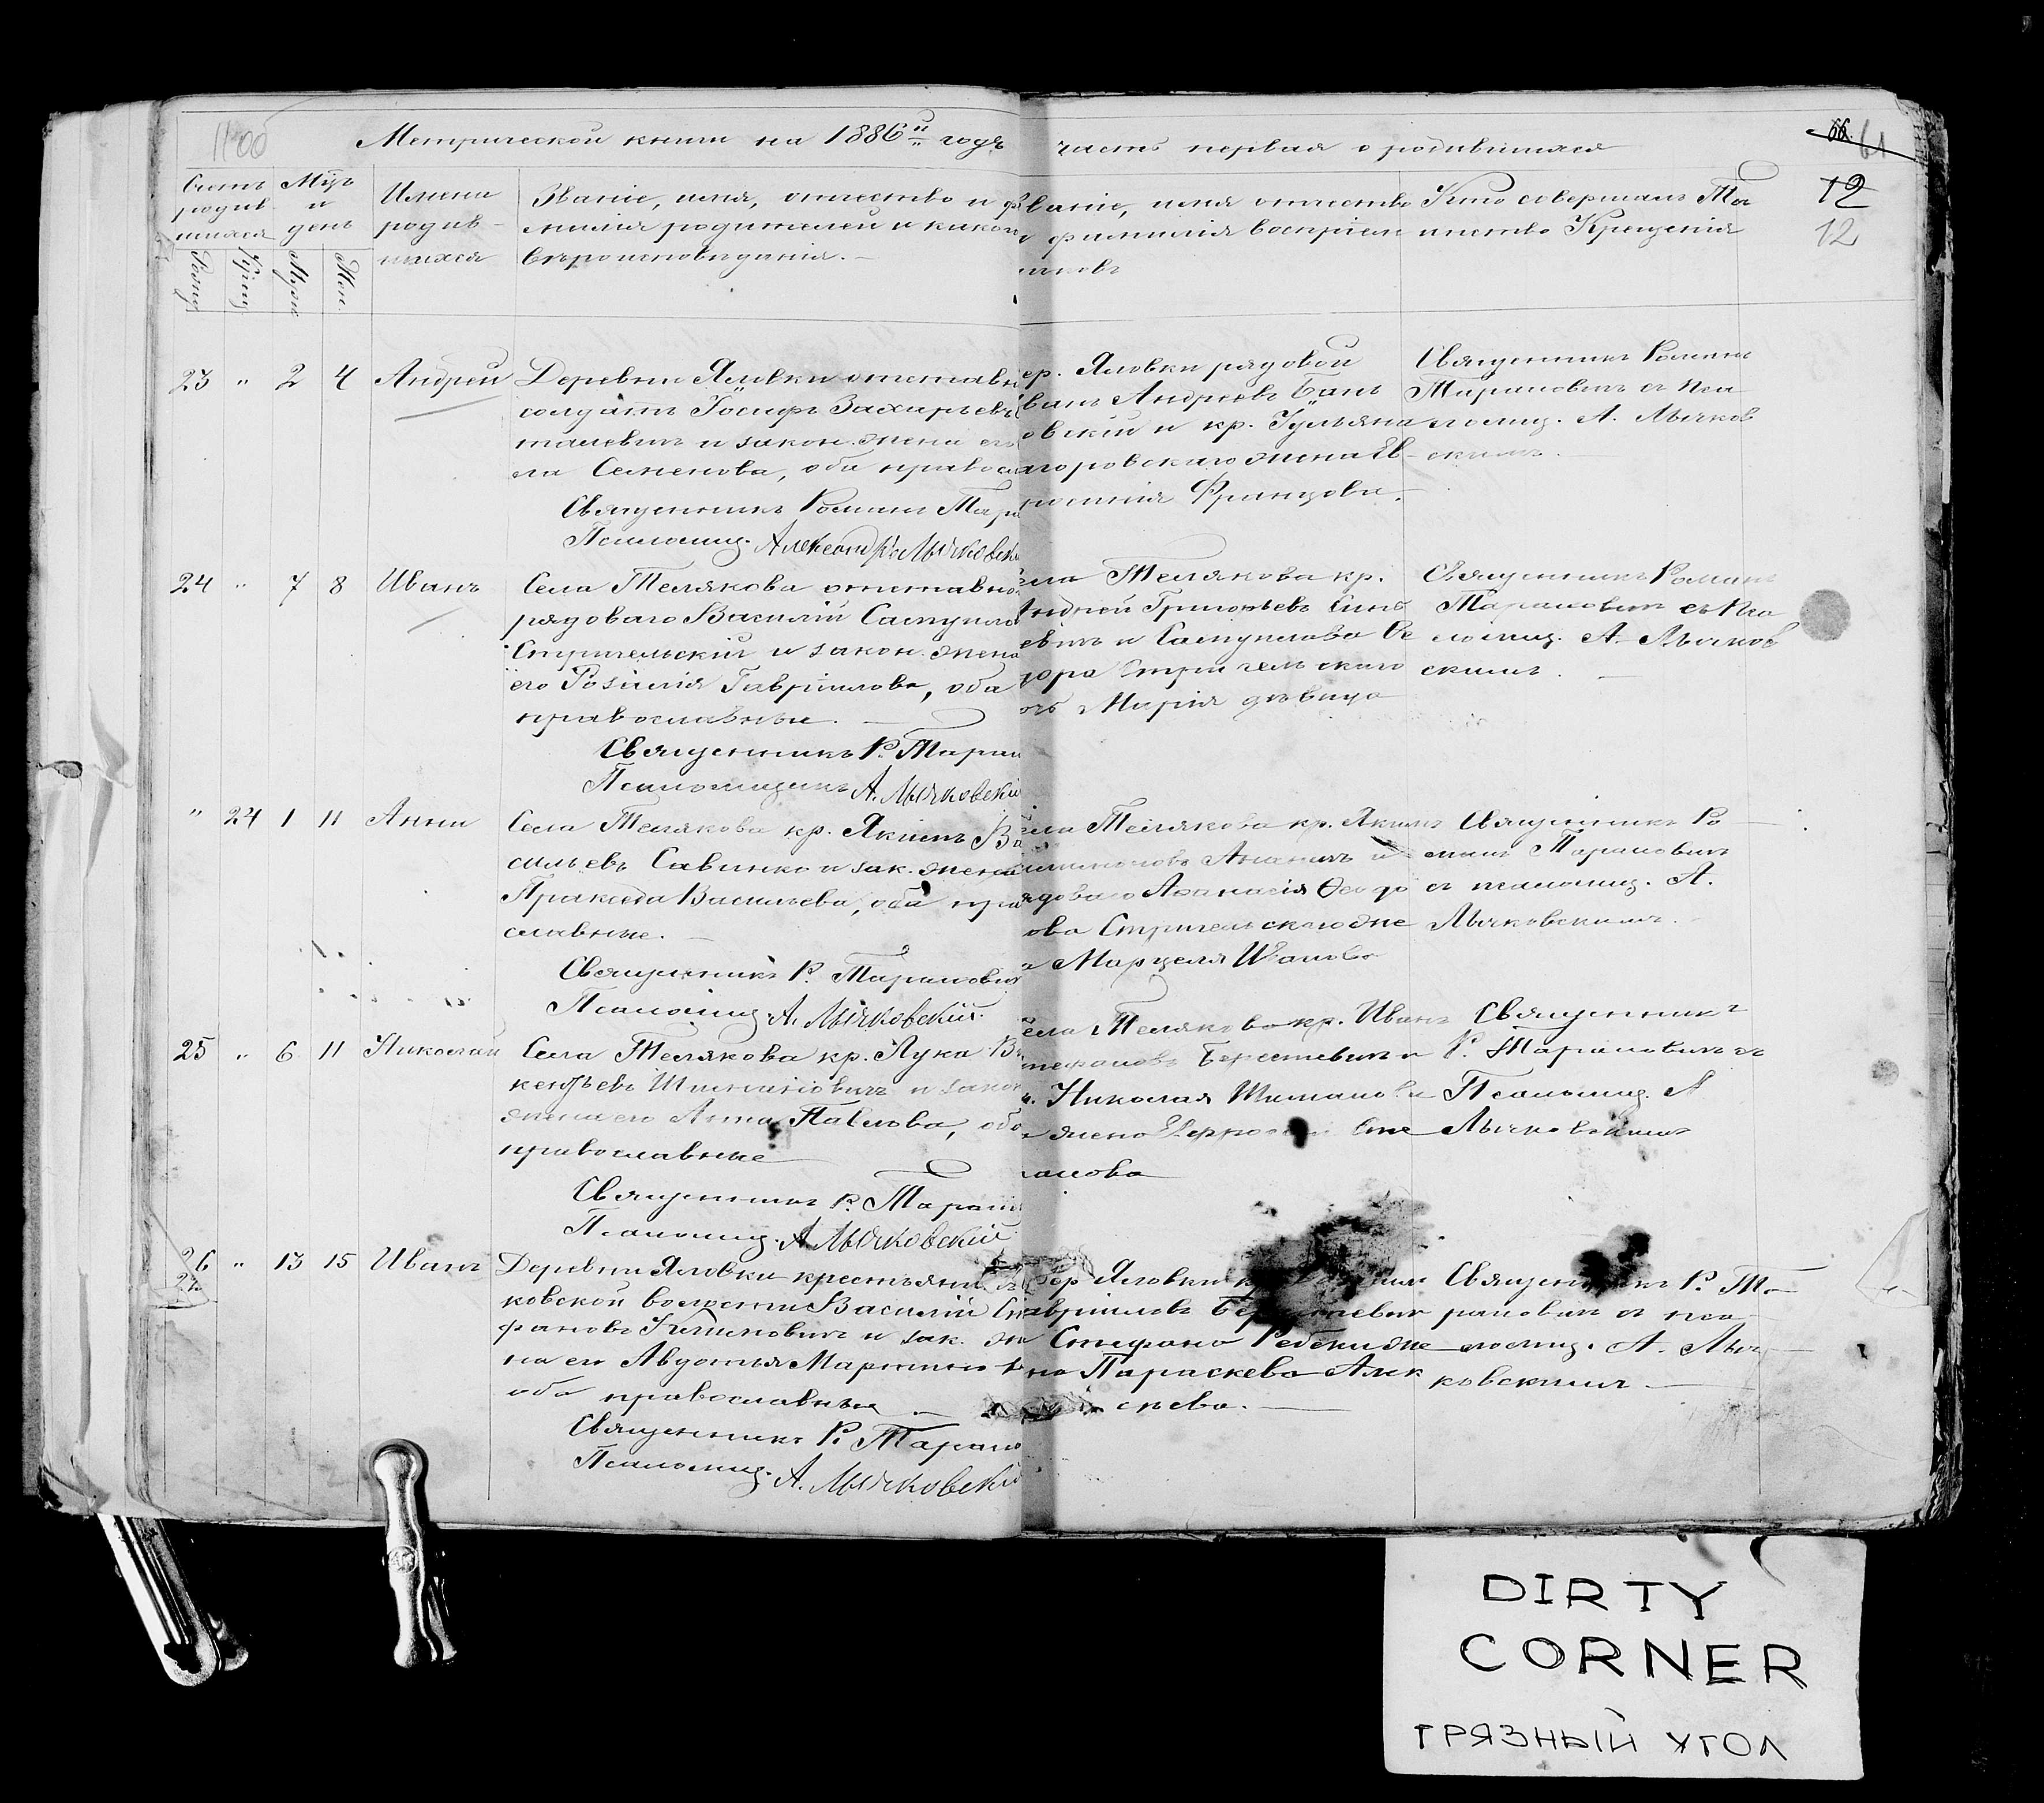 1100
Метрической книги на 1886й годъ
часть первая о родившихся
66.
61
12
12
Счетъ родив шихся
Мцъ и день
Имени родив- шихся
Званіе, имя, отчество и фа
милія родителей и какого
вѣроисповѣданія. —
Рожд.
Крещ.
Муж.
Жен.
ваніе, имя отчество
и фамилія воспріем
никовъ
Кто совершалъ Та
инство Крещенія
23 " 2 4 Андрей
Деревни Яловки отставн
солдатъ Іосифъ Захарьевъ
талевичъ и закон. жена его
ла Семенова, оба правосл
Священникъ Романъ Тара
Псаломщ. Александръ Лычковск
ер. Яловки рядовой
ванъ Андреевъ Бан
овскій и кр. Іульяна
агоровскаго жена Ев-
росинія Францова.
Священникъ Романъ
Тарановичъ съ пса
ломщ. А. Лычков
скимъ. —
24 " 7 8 Иванъ
Села Телякова отставно
рядоваго Василій Самуилов
Стригельскій и закон. жена
его Розалія Гавріилова, оба
православные. —
Священникъ Р. Таран
Псаломщикъ А. Лычковскій
ела Телякова кр.
Андрей Григорьевъ Синь
евичъ и Самуилова Ѳе
дора Стригельскаго
очь Марія дѣвица
Священникъ Романъ
Тарановичъ съ Пса
ломщ. А. Лычков
скимъ. —
" 24 1 11 Анна
Села Телякова кр. Якимъ Ва
сильевъ Савинко и зак. жена
Пракседа Васильева, оба пра
славные. —
Священникъ Р. Тарановичъ
Псаломщ. А. Лычковскій.
ела Телякова кр. Якимъ
Ананичъ и
ядоваго Аѳанасія Ѳеодо
ова Стригельскаго же
а Марцеля Иванова
Священникъ Ро
манъ Тарановичъ
съ псаломщ. А.
Лычковскимъ. —
25 " 6 11 Николай
Села Телякова кр. Лука Ви
кентьевъ Шимановичъ и закон
жена его Анна Павлова, оба
православные
Священникъ Р. Таран
Псаломщ. А. Лычковскій
ела Телякова кр. Иванъ
тефановъ Берестевичъ и
Николая Шимано
жена Сте
анова
Священникъ
Р. Тарановичъ съ
Псаломщ. А
Лычковскимъ
26 " 13 15 Иванъ
27
Деревни Яловки крестьянин
ковской волости Василій Сте
фановъ и зак. же
на его Авдотья Мартинов
оба православные —
Священникъ Р. Тарано
Псаломщ. А. Лычковскій
Дер Яловки
авріиловъ
Стефана же
на Параскева Алек
сѣева. —
Священникъ Р. Та
рановичъ съ пса
ломщ. А. Лыч
ковскимъ —
DIRTY
CORNER
ГРЯЗНЫЙ УГОЛ